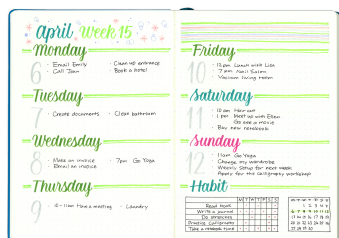 April, Week 15
Monday
6
· Email Emily
· Call Jean
· Clean up entrance
Book a hotel
Tuesday
7
· Create documents
· Clean bathroom
Wednesday
8
· Make an invoice
Email an invoice
· 7pm Go Yoga
Thursday
9
· Laundry
Friday
10
· 12pm Lunch with Lisa
· 7pm Nail Salon
· Vacuum living room
Saturday
11
· 10am Hair cut
· 1pm Meet up with Ellen
Go see a movie
· Buy new notebook
Sunday
12
· 11am Go Yoga
· Change my wardrobe
· Weekly setup for next week
· Apply for the calligraphy workshop
Habit
M T W T F S S
Read book
Write a journal
Do stretches
Practice Calligraphy